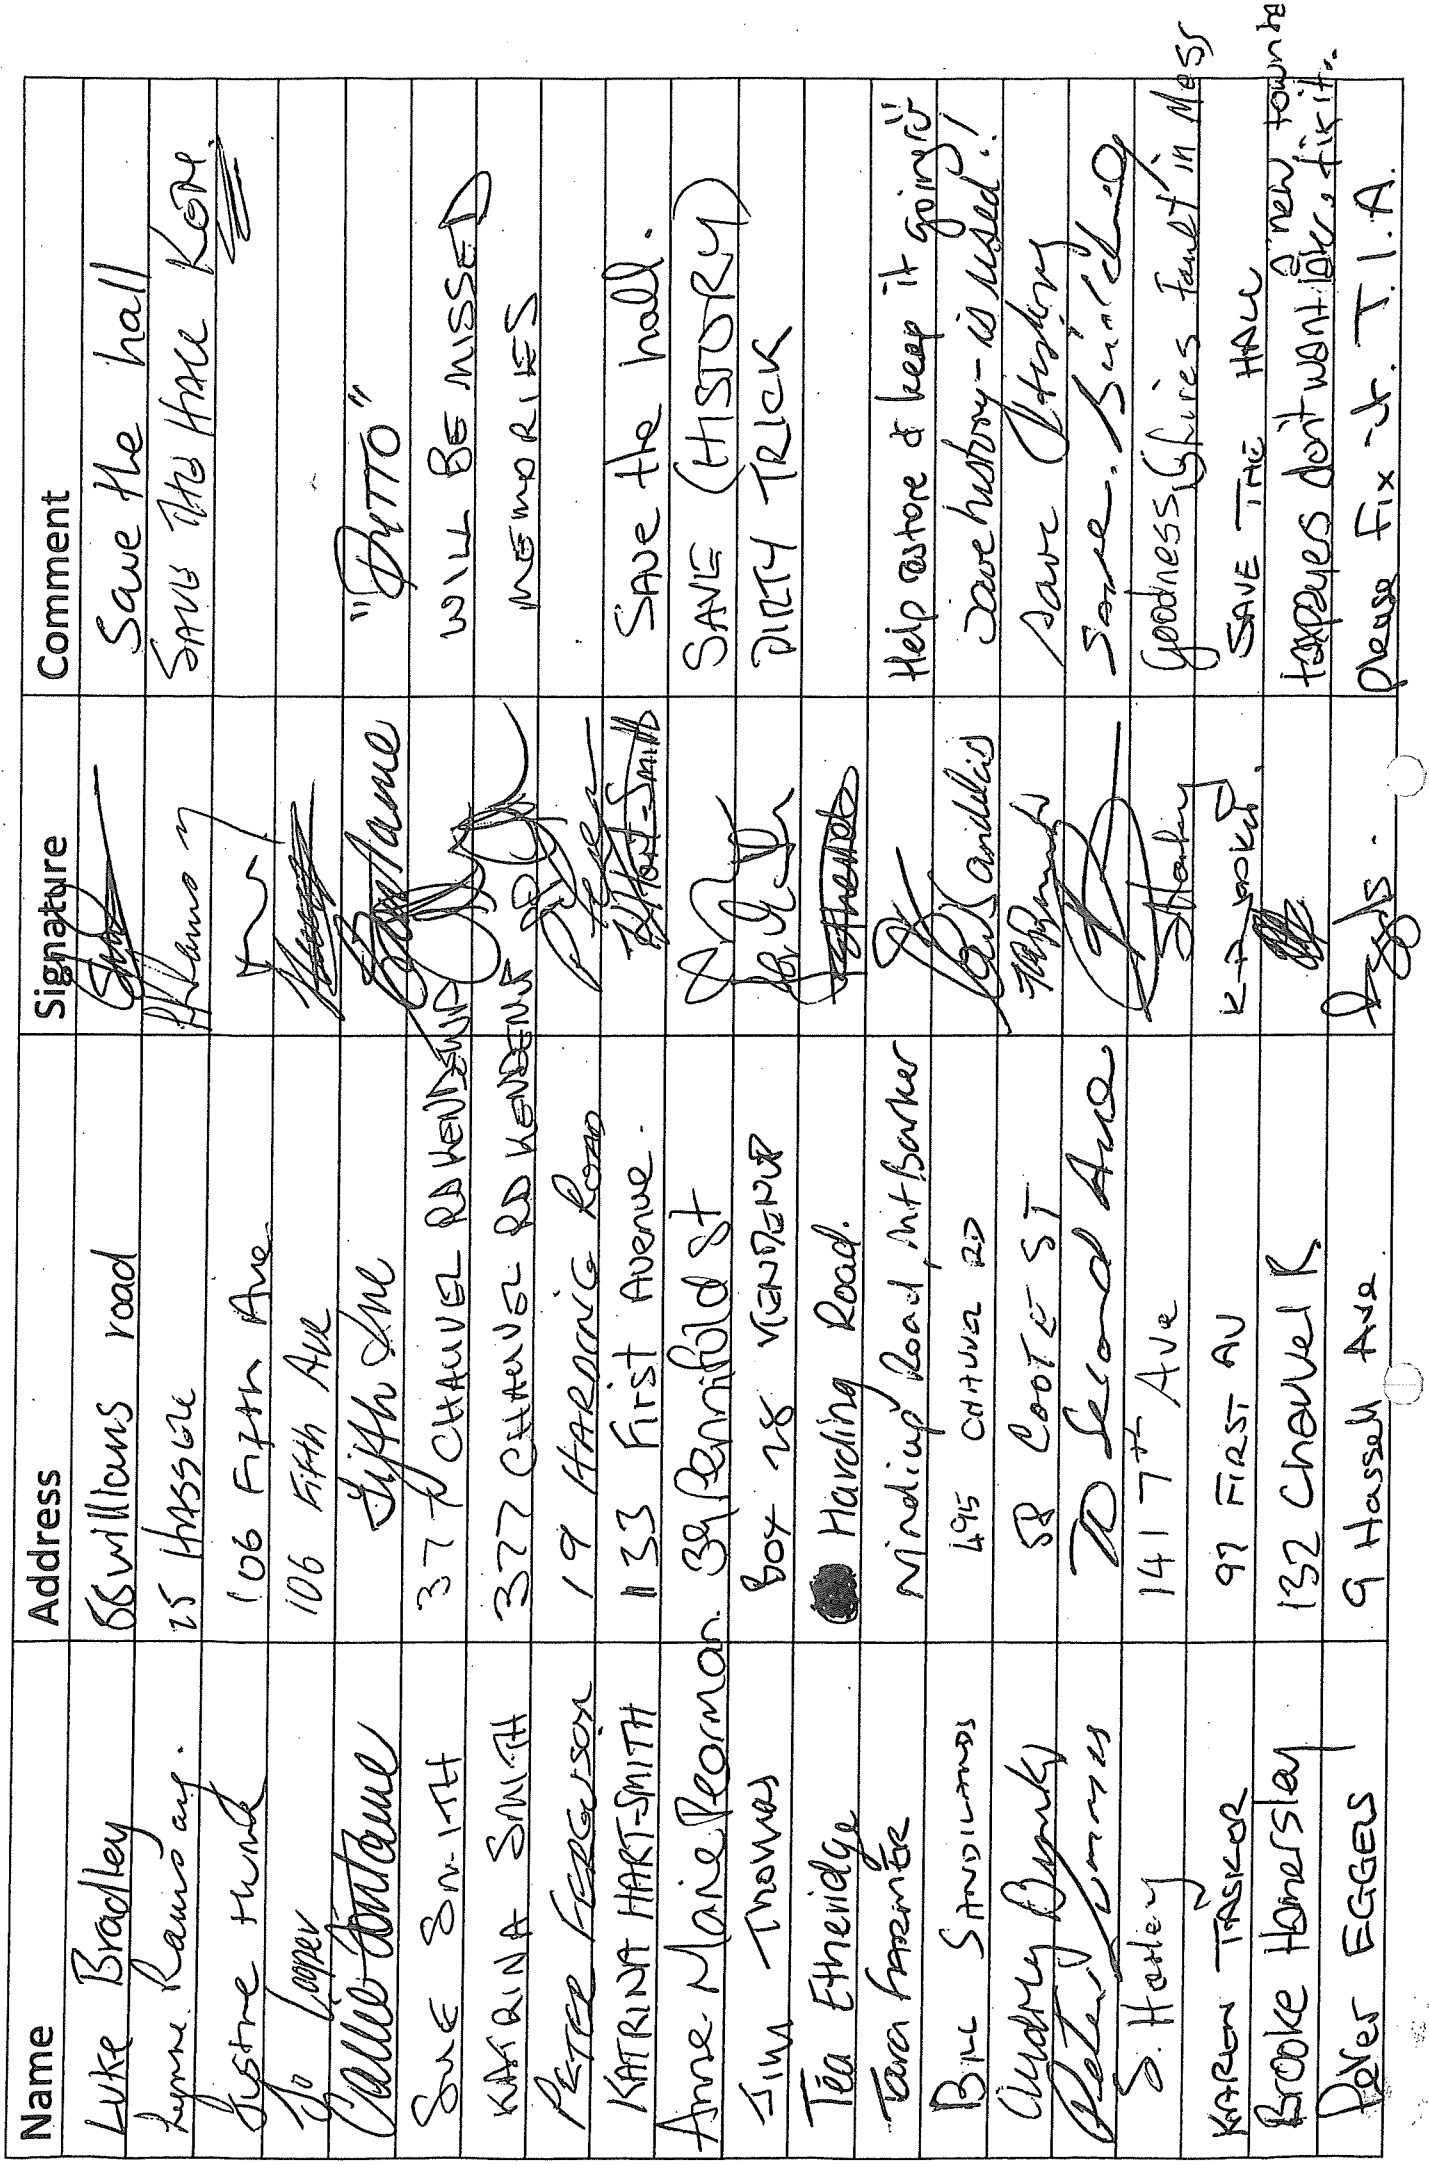 Name Address Signature Comment
Luke Bradley 66 williams road Save the hall
Lynne Ramsay. 25 HASSELL SAVE THE HALL
106 Fifth Ave
Jo Cooper 106 Fifth Ave
Callie Fontaine Fifth Ave "DITTO"
SUE SMITH 377 CHAUVEL RD KENDENUP WILL BE MISSED
KATRINA SMITH 377 CHAUVEL RD KENDENUP MEMORIES
PETER FERGUSON 19 HARDING ROAD
KATRINA HART-SMITH 1133 First Avenue. Hart-Smith Save the hall.
Anne-Marie Pearman. 39 Pennifold St SAVE (HISTORY)
Jim Thomas Box 28 KENDENUP DIRTY TRICK
Tea Etheridge Harding Road. Etheridge
Tara FARMER Nindiup Road, Mt Barker Help restore & keep it going"
BILL SANDILANDS 495 CHAUVEL RD Sandilands Save history - is used!!
Audrey 58 COOTE ST Save History
Peter 70 Second Ave Save. Building
S. Harley 141 7th Ave SHarley Goodness Shires fault in Mess
KAREN TASKER 97 FIRST AV SAVE THE HALL
Brooke Hamersley 132 Chauvel R taxpayers don't want a new town fix it..
Peter EGGERS 9 Hassell Ave please Fix it. T.I.A.